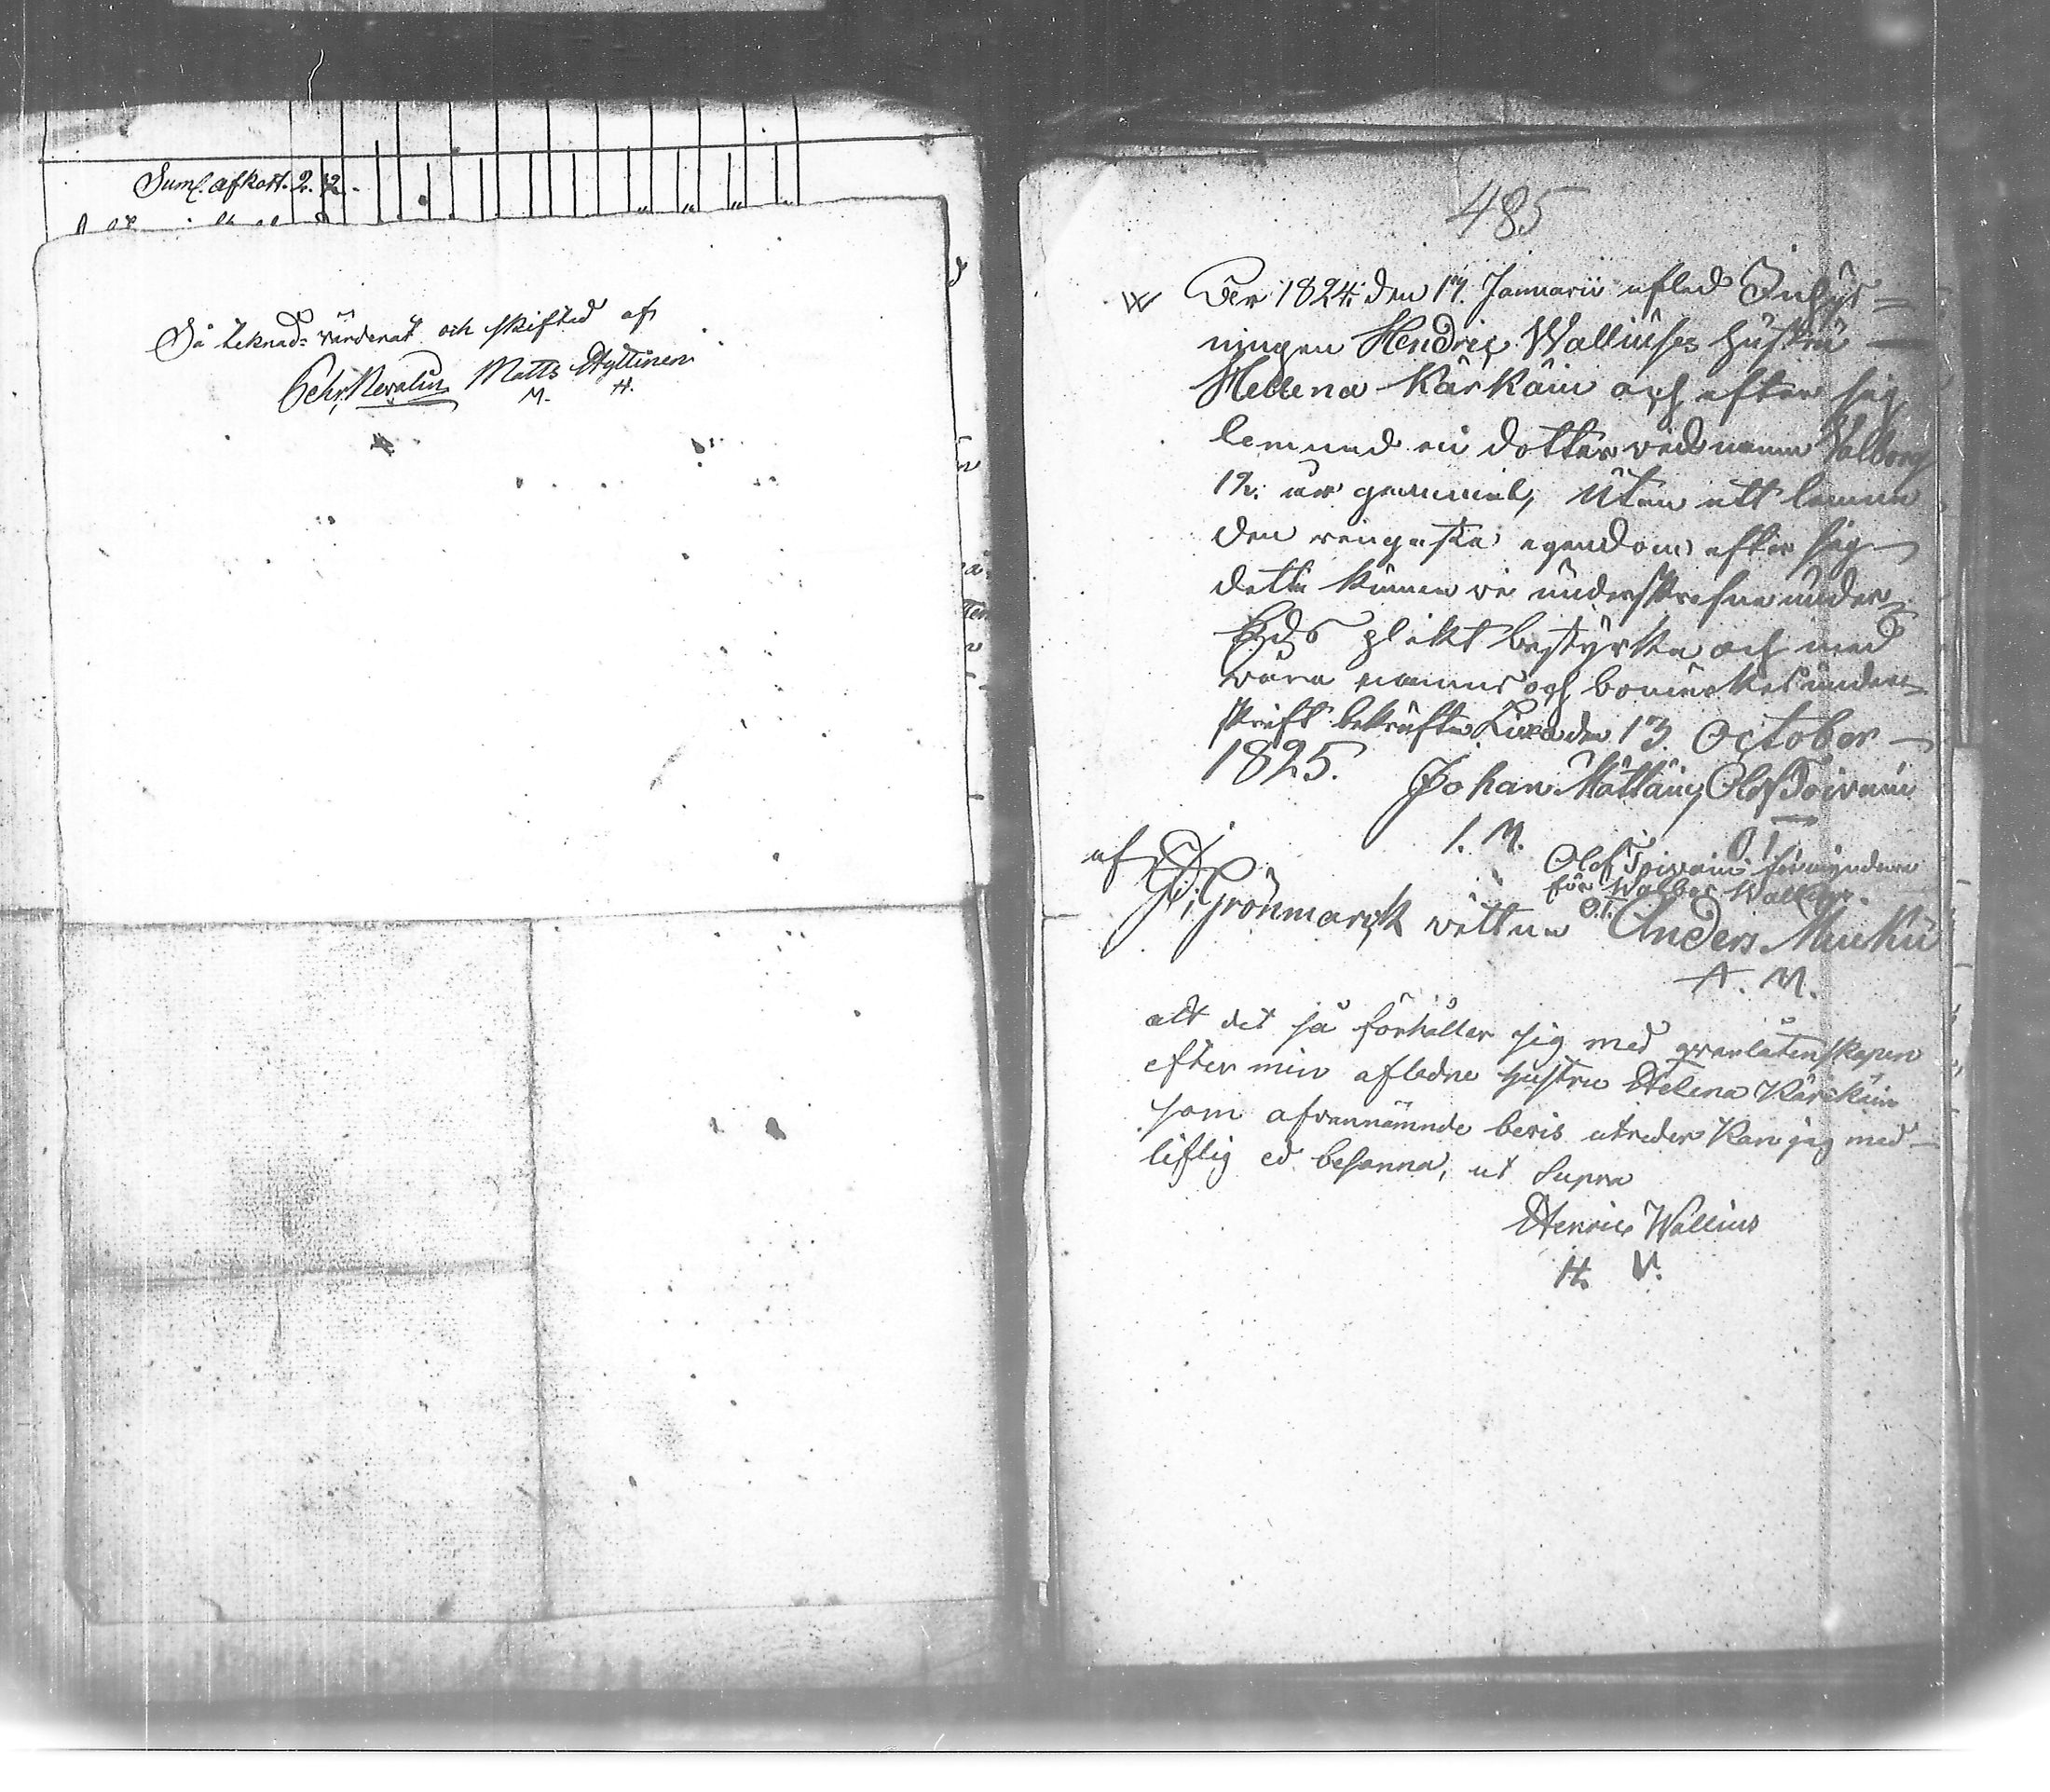 Suml. afkort. 2. 12.
Så teknad värderat och skiftad af
Pehr Nevalin Matts Hyttinen
M. H.
485
W
Åer 1824 den 17. Januarii afled Inhys=
ningen Hendric Walliuses hustru
Hellena Kärkäin och efter sig
lemnad en dotter vid namn Valborg
12. år gammal, Utan att lemna
den ringaste egendom efter sig
detta kunna vi underskrefne under
Eds plikt bestyrka och med
våra namns och bomärkes under
skrift bekräfta den 13 October
1825.
Johan Mättäinj Olof Toivain
I. M. O T
Olof Toivain förmyndere
för Walbor Wallius.
O.T.
af
Grönmarck vittna Anders Mu
A. M.
att det så förhåller sig med qvarlåtenskapen
efter min afledne hustru Helena Kärckäin
som ofvannämnde bevis utreder kan jag med
liflig ed besanna, ut Supra
Henric Wallius
H. V.